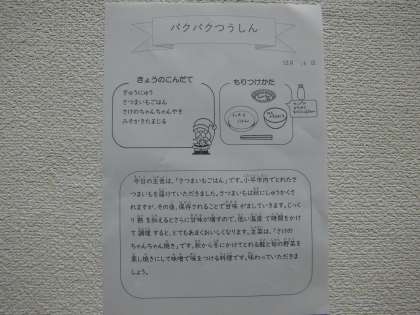 パクパクつうしん
12月
日
きょうのこんだて
ぎゅうにゅう
さつまいもごはん
さけのちゃんちゃんやき
みそかきたまじる
もりつけかた
今日の主食は、「さつまいもごはん」です。小平市内でとれたさ
つまいもを届けていただきました。さつまいもは秋にしゅうかくさ
れますが、その後、保存されることで甘味がましていきます。じっく
り熱を加えるとさらに甘味が増すので、低い温度で時間をかけ
て調理すると、とてもあまくおいしくなります。主菜は、「さけの
ちゃんちゃん焼き」です。秋から冬にかけてとれる鮭と旬の野菜を
蒸し焼きにして味噌で味をつける料理です。味わっていただきま
しょう。